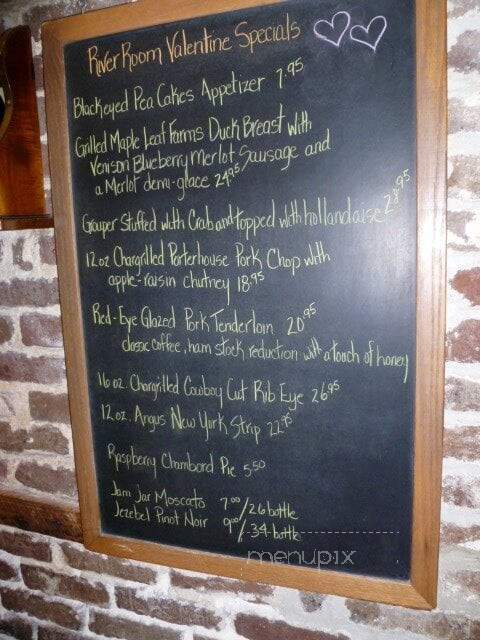 River Room Valentine Specials
Blackeyed Pea Cakes Appetizer 7.95
Grilled Maple Leaf Farms Duck Breast with
Venison Blueberry Merlot Sausage and
a Merlot demi-glace 24.95
Grouper Stuffed with Crab and topped with hollandaise 28.95
12 oz Chargrilled Porterhouse Pork Chop with
apple-raisin chutney 18.95
Red-Eye Glazed Pork Tenderloin 20.95
classic coffee, ham stock reduction with a touch of honey
16 oz. Chargrilled Cowboy Cut Rib Eye 26.95
12 oz. Angus New York Strip 22.95
Raspberry Chambord Pie 5.50
Jam Jar Moscato 7.00/26 bottle
Jezebel Pinot Noir 9.00/34 bottle
menupix